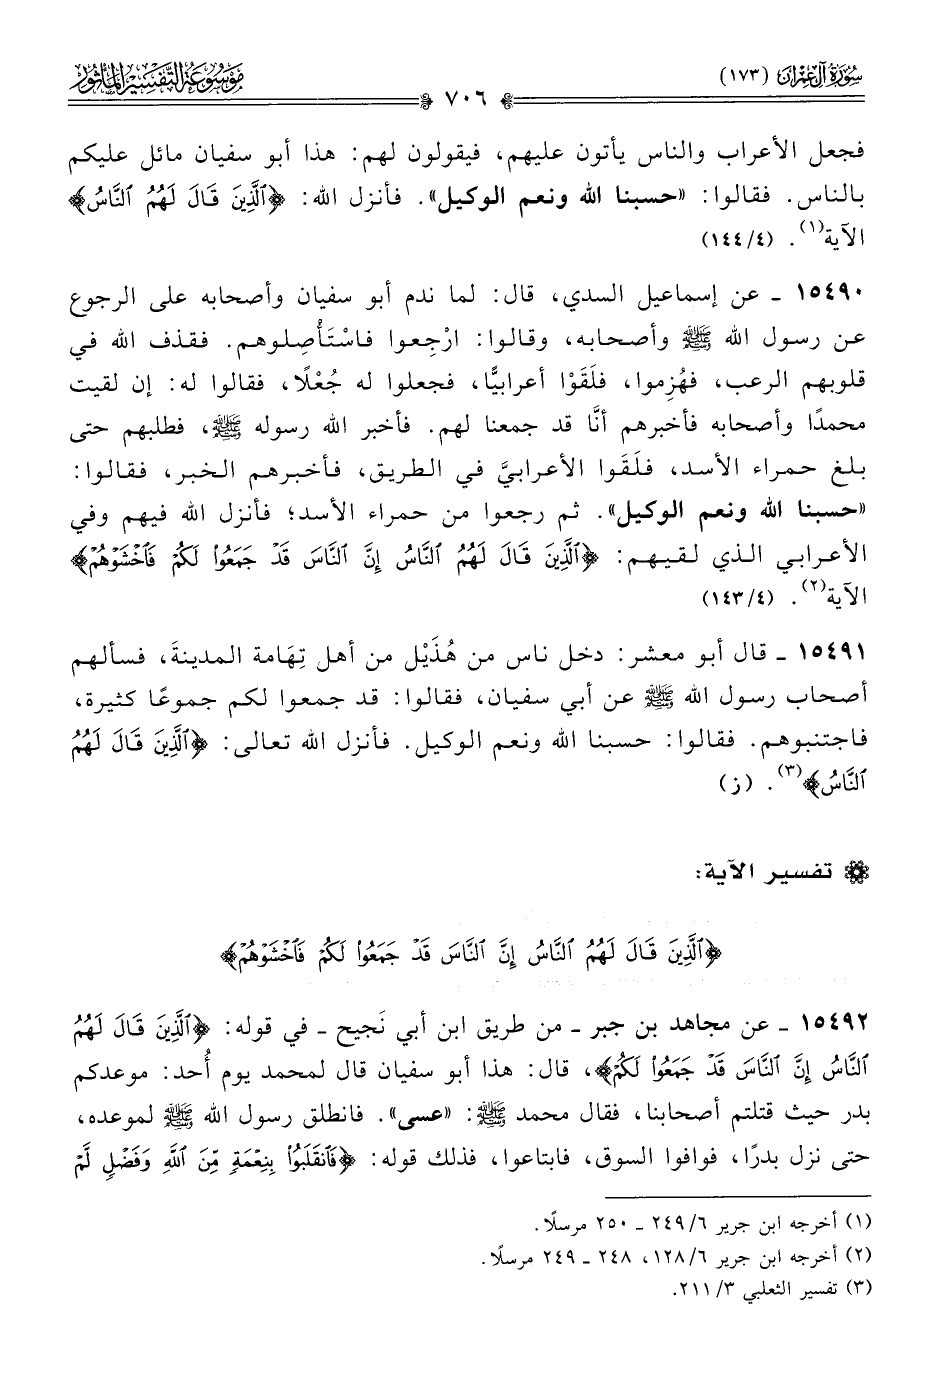 سُورَةُ آلِ عِمْرَان (١٧٣)
موسوعة التفسير المأثور
٧٠٦
فجعل الأعراب والناس يأتون عليهم، فيقولون لهم: هذا أبو سفيان مائل عليكم
بالناس. فقالوا: «حسبنا الله ونعم الوكيل». فأنزل الله: ﴿ٱلَّذِينَ قَالَ لَهُمُ ٱلنَّاسُ﴾
الآية(١). (١٤٤/٤)
١٥٤٩٠ ـ عن إسماعيل السدي، قال: لما ندم أبو سفيان وأصحابه على الرجوع
عن رسول الله ﷺ وأصحابه، وقالوا: ارْجِعوا فاسْتَأْصِلوهم. فقذف الله في
قلوبهم الرعب، فهُزِموا، فلَقَوْا أعرابيًّا، فجعلوا له جُعْلًا، فقالوا له: إن لقيت
محمدًا وأصحابه فأخبرهم أنَّا قد جمعنا لهم. فأخبر الله رسوله ﷺ، فطلبهم حتى
بلغ حمراء الأسد، فلَقَوا الأعرابيَّ في الطريق، فأخبرهم الخبر، فقالوا:
«حسبنا الله ونعم الوكيل». ثم رجعوا من حمراء الأسد؛ فأنزل الله فيهم وفي
الأعرابي الذي لقيهم: ﴿ٱلَّذِينَ قَالَ لَهُمُ ٱلنَّاسُ إِنَّ ٱلنَّاسَ قَدْ جَمَعُوا۟ لَكُمْ فَٱخْشَوْهُمْ﴾
الآية(٢). (١٤٣/٤)
١٥٤٩١ ـ قال أبو معشر: دخل ناس من هُذَيْل من أهل تِهَامة المدينةَ، فسألهم
أصحاب رسول الله ﷺ عن أبي سفيان، فقالوا: قد جمعوا لكم جموعًا كثيرة،
فاجتنبوهم. فقالوا: حسبنا الله ونعم الوكيل. فأنزل الله تعالى: ﴿ٱلَّذِينَ قَالَ لَهُمُ
ٱلنَّاسُ﴾(٣). (ز)
تفسير الآية:
﴿ٱلَّذِينَ قَالَ لَهُمُ ٱلنَّاسُ إِنَّ ٱلنَّاسَ قَدْ جَمَعُوا۟ لَكُمْ فَٱخْشَوْهُمْ﴾
١٥٤٩٢ ـ عن مجاهد بن جبر ـ من طريق ابن أبي نَجيح ـ في قوله: ﴿ٱلَّذِينَ قَالَ لَهُمُ
ٱلنَّاسُ إِنَّ ٱلنَّاسَ قَدْ جَمَعُوا۟ لَكُمْ﴾، قال: هذا أبو سفيان قال لمحمد يوم أُحد: موعدكم
بدر حيث قتلتم أصحابنا، فقال محمد ﷺ: «عسى». فانطلق رسول الله ﷺ لموعده،
حتى نزل بدرًا، فوافوا السوق، فابتاعوا، فذلك قوله: ﴿فَٱنقَلَبُوا۟ بِنِعْمَةٍ مِّنَ ٱللَّهِ وَفَضْلٍ لَّمْ
(١) أخرجه ابن جرير ٢٤٩/٦ ـ ٢٥٠ مرسلًا.
(٢) أخرجه ابن جرير ١٢٨/٦، ٢٤٨ ـ ٢٤٩ مرسلًا.
(٣) تفسير الثعلبي ٢١١/٣.